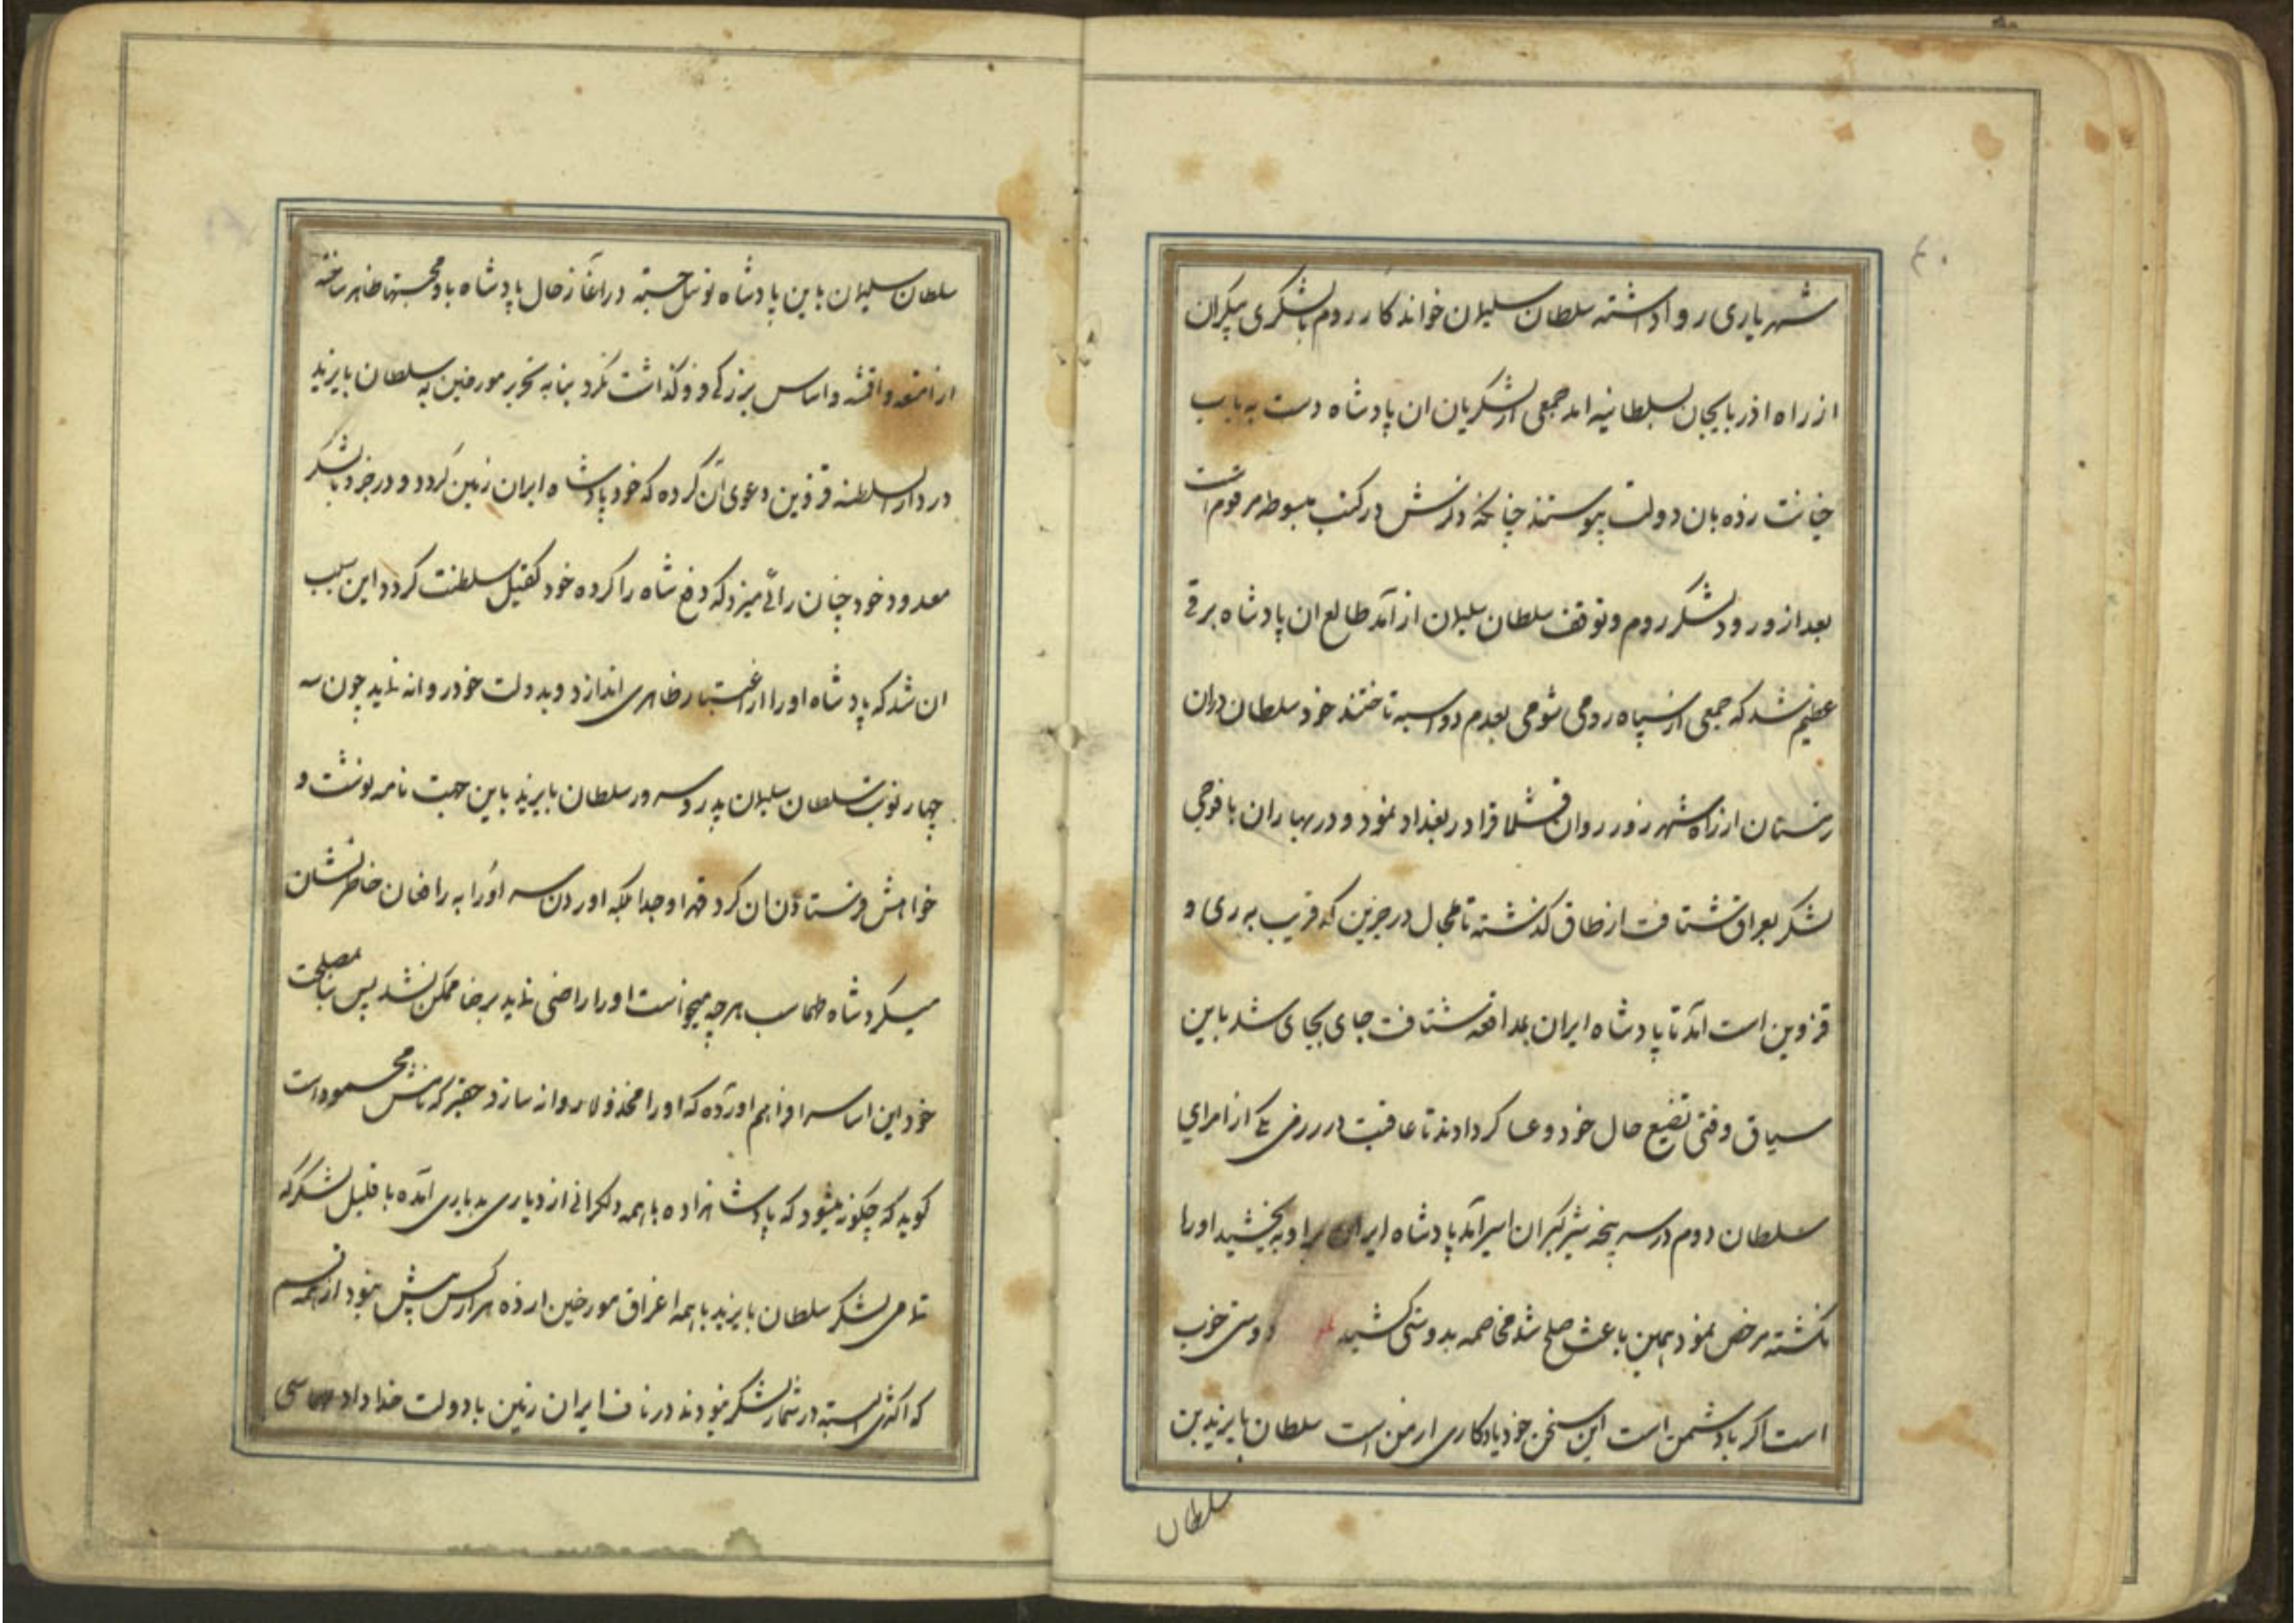 ۴۰
شهریاری رواداشته سلطان سلیمان خواندکار روم بالشکری بیکران
از راه اذربایجان بسلطانیه امد جمعی ازلشکریان ان پادشاه دست به باب
خیانت زده بان دولت پیوستند چنانکه ذکرش در کتب مبسوطه مرقوم است
بعد از ورود لشکر روم و توقف سلطان سلیمان از آمد طالع ان پادشاه برفی
عظیم شد که جمعی از سپاه رومی شومی بعدم دواسبه تاختند خود سلطان دران
زمستان از راه شهر زور روان قشلاقرا در بغداد نمود و در بهاران با فوجی
لشکر بعراق شتافت از طاق گذشته تا محال درجزین که قریب به ری و
قزوین است آمد تا پادشاه ایران بمدافعه شتافت جای بجای شد باین
سیاق وقتی تضیع حال خود و عساکر دادند تا عاقبت در رزمی یکی از امرای
سلطان دوم در سر پنجه شیر گیران اسیر آمد پادشاه ایران براو بخشید اورا
نکشته مرخص نمود همین باعث صلح شد مخاصمه بدوستی کشید دوستی خوب
است اکر بادشمن است این سخن خود یادکاری ازمن است سلطان بایزید بن
سلطان
سلطان سلیمان باین پادشاه توسل جسته در آغاز حال پادشاه باو محبتها ظاهر ساخته
از امتعه و اقمشه و اساس بزرکی فروکذاشت نکرد بنا به تحریر مورخین سلطان بایزید
در دارالسلطنه قزوین دعوی آن کرده که خود پادشاه ایران زمین کردد و در جزو بالشکر
معدود خود چنان رائی میزد که دفع شاه را کرده خود کفیل سلطنت کردد این سبب
ان شد که پادشاه اورا از اعتبار ظاهری اندازد و بدولت خود روانه نماید چون سه
چهار نوبت سلطان سلیمان پدر سلطان بایزید باین جهت نامه نوشت و
خواهش فرستادن ان کرد قهرا و جدا بلکه اوردن سر اورا به راضان خاطرنشان
میکرد شاه طهماسب هرچه میخواست اورا راضی نماید برضا ممکن نشد پس بنا بمصلحت
خود این اساسرا فراهم اورده که اورا مخذولا روانه سازد حقیر که نامش محمود است
کوید که چکونه میشود که پادشاهزاده با همه دلکرانی از دیاری بدیاری آمده با قلیل لشکر که
تمامی لشکر سلطان بایزید با همه اغراق مورخین از ده هزار کس بیش نبود از همه قسم
که اکثری البسته در شمار لشکر نبودند در ناف ایران زمین با دولت خداداد